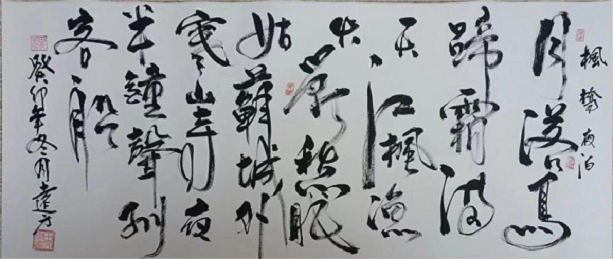 楓橋夜泊
月落烏
啼霜滿
天江楓漁
火對愁眠
姑蘇城外
寒山寺夜
半鐘聲到
客船
癸卯年冬月